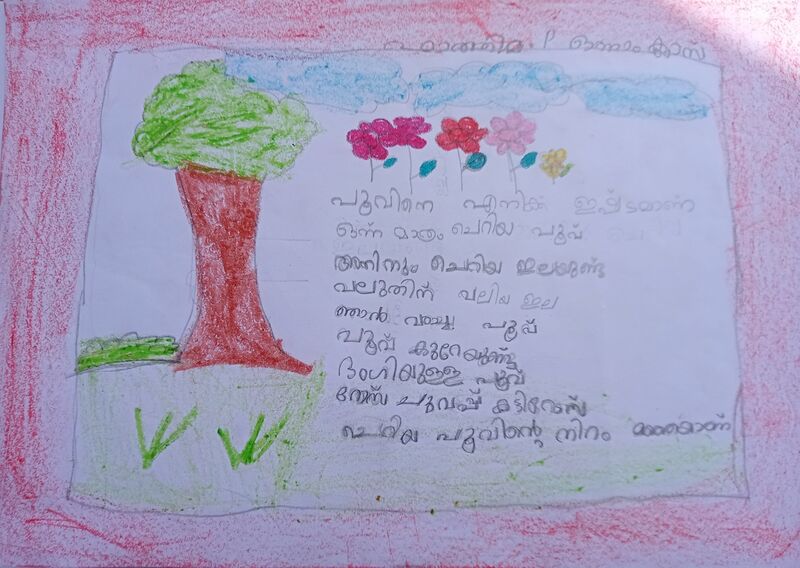 ഒന്നാം ക്ലാസ്
പൂവിനെ എനിക്ക് ഇഷ്ടമാണ്
ഒന്ന് മാത്രം ചെറിയ പൂവ്
അതിനും ചെറിയ ഇലയുണ്ട്
വലുതിന് വലിയ ഇല
ഞാൻ വരച്ച പൂവ്
പൂവ് കുറേയുണ്ട്
ഭംഗിയുള്ള പൂവ്
റോസ് ചുവപ്പ് കട്ടിറോസ്
ചെറിയ പൂവിന്റെ നിറം മഞ്ഞയാണ്